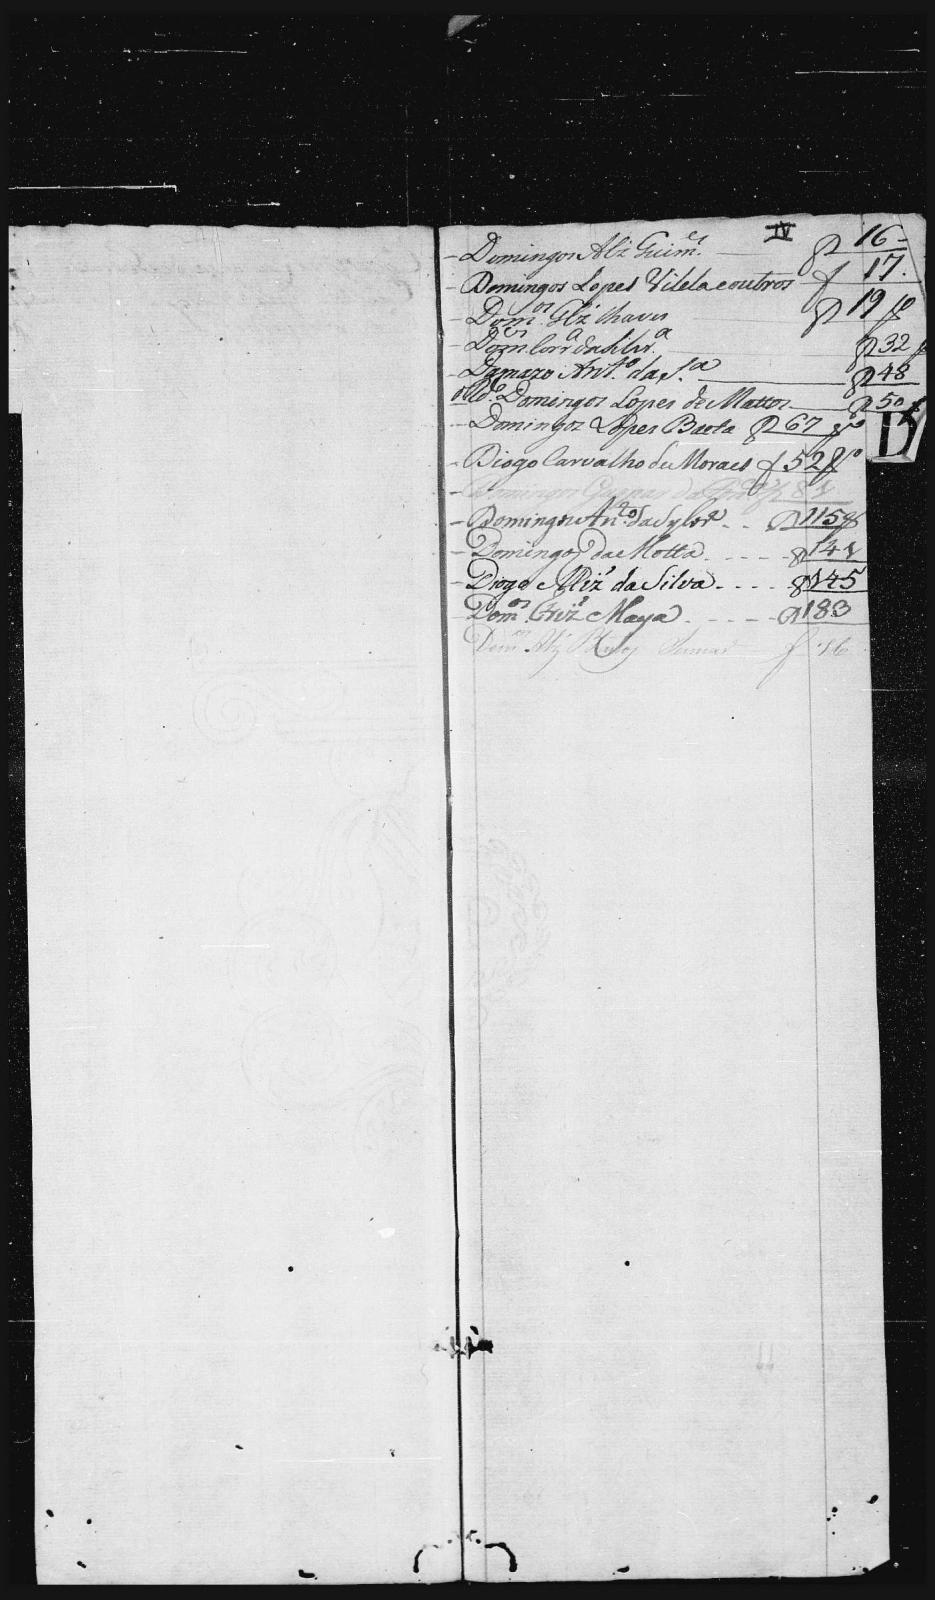 IV
Domingos Alz Guim.es 16
Domingos Lopes Vilela e outros f 17.
Dom.os Glz chaves 19
Dom.os Corr.a da Silv.a 32
Damazo Ant.o da S.a 48
Domingos Lopes de Mattos 50
D
Domingos Lopes Basta 67
Diogo Carvalho de Moraes f 52
Domingos Gaspar da
Domingos An.to da Sylva 115
Domingos da Motta 141
Diogo Miz da Silva 145
Dom.os Maya 183
Dom.os Alz f 16